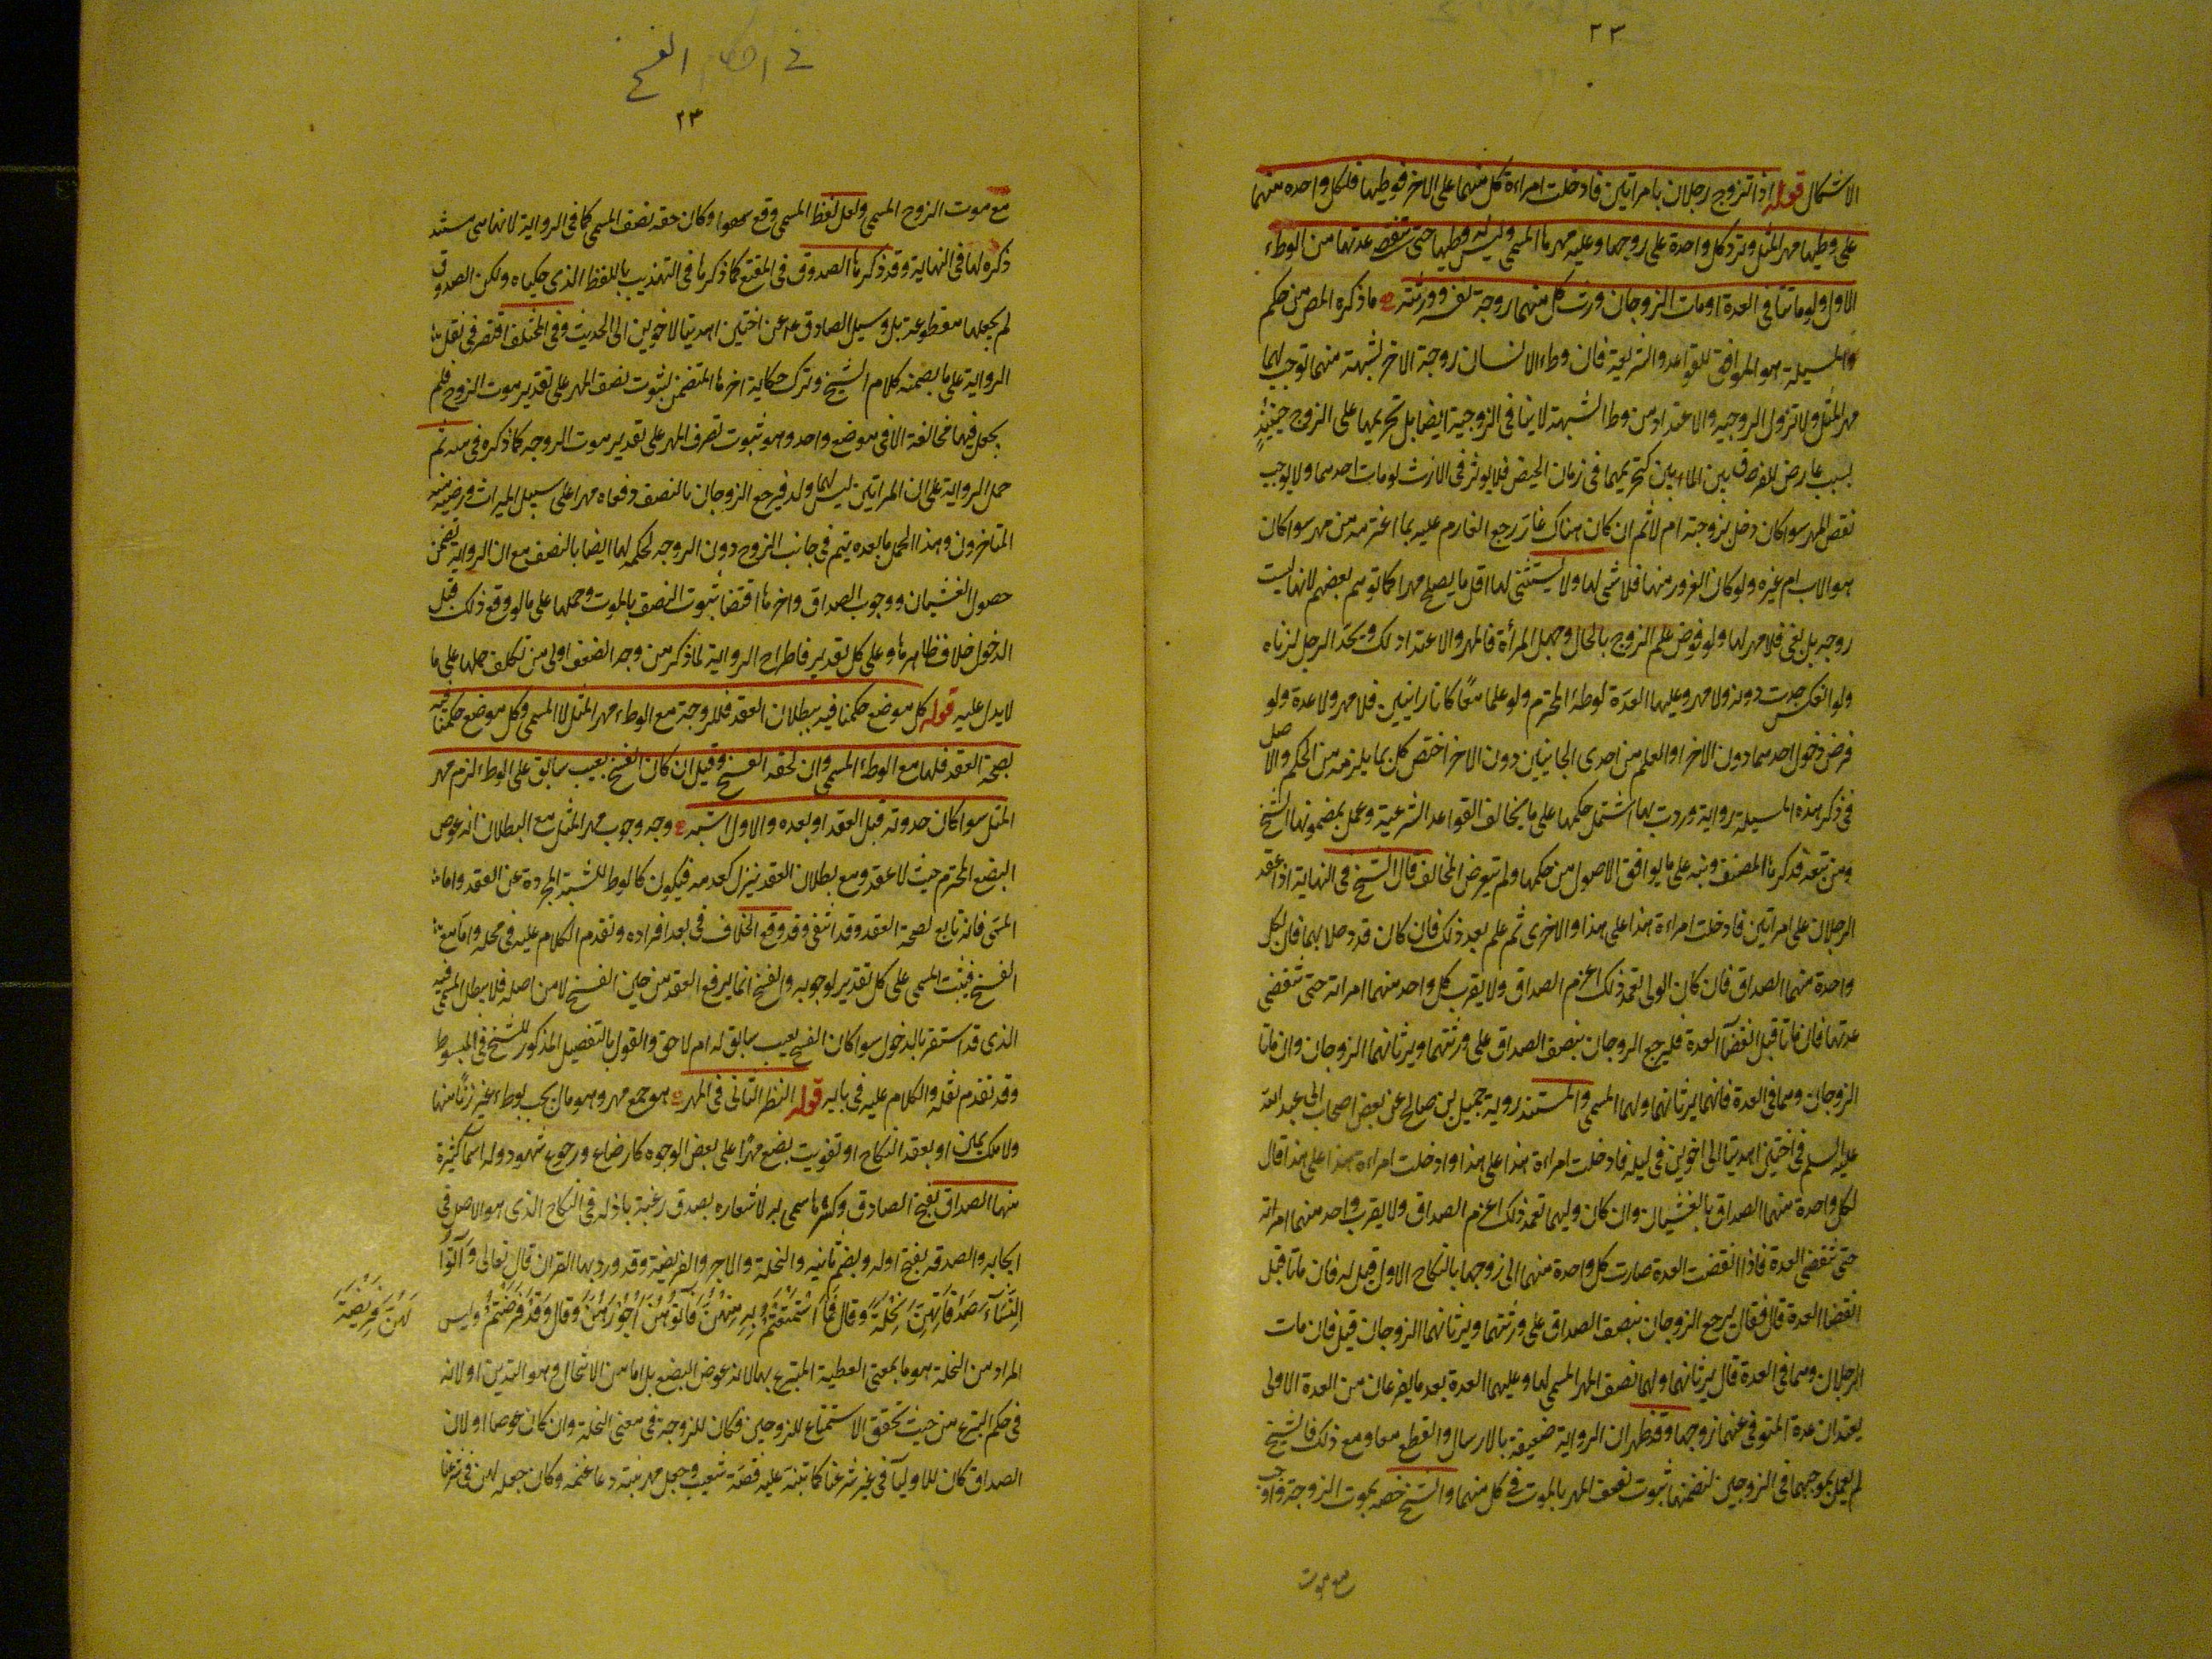 ٢٣
الاشكال قوله اذا تزوج رجلان بامراتين فادخلت امراءة كل منهما على الاخر فوطيها فلكل واحده منهما
على وطيها مهر المثل وترد كل واحدة على زوجها وعليه مهرها المسمى وليس له وطيها حتى تنقضي عدتها من الوطء
الاول ولو ماتتا في العدة او مات الزوجان ورث كل منهما زوجة نفسه وورثته ما ذكره المص من حكم
المسيلة هو الموافق للقواعد الشرعية فان وطء الانسان زوجة الاخر لشبهة منهما توجب لها
مهر المثل ولا تزول الزوجيه والاعتداد من وطا الشبهة لا ينافى الزوجية ايضا بل تحريمها على الزوج حينئذٍ
بسبب عارض للفرق بين الماءين كتحريمها فى زمان الحيض فلا يوثر فى الارث لو مات احدهما ولا يوجب
نقص المهر سوا كان دخل بزوجته ام لا ثم ان كان هناك غارّ رجع الغارم عليه بما اغترمه من مهر سوا كان
هو الاب ام غيره ولو كان الغرور منها فلا شى لها ولا يستثنى لها اقل ما يصلح مهرا كما توهم بعضهم لانها ليست
زوجه بل بغى فلا مهر لها ولو فرض علم الزوج بالحال وجهل المرأة فالمهر والاعتداد لك ويحد الرجل لزناه
ولو انعكس حدت دونه ولا مهر وعليها العدة لوطئه المحترم ولو علما معًا كانا زانيين فلا مهر ولا عدة ولو
فرض دخول احدهما دون الاخر او العلم من احدى الجانبين دون الاخر اختص كل بما يلزمه من الحكم والاصل
فى ذكر هذه المسيلة رواية وردت بها اشتمل حكمها على ما يخالف القواعد الشرعية وعمل بمضمونها الشيخ
ومن تبعه فذكرها المصنف ونبه على ما يوافق الاصول من حكمها ولم يتعرض المخالف قال الشيخ فى النهاية اذا عقد
الرجلان على امراتين فادخلت امراءة هذا على هذا والاخرى ثم علم بعد ذلك فان كان قد دخلا بهما فان لكل
واحدة منهما الصداق فان كان الولى تعمد ذلك اغرم الصداق ولا يقرب كل واحد منهما امراته حتى تنقضى
عدتها فان ماتتا قبل انقضآ العدة فليرجع الزوجان بنصف الصداق على ورثتهما ويرثانهما الزوجان وان ماتا
الزوجان وهما فى العدة فانهما يرثانهما ولهما المسمى والمستند رواية جميل بن صالح عن بعض اصحاب ابى عبد الله
عليه السلم فى اختين اهديتا الى اخوين فى ليله فادخلت امراءة هذا على هذا وادخلت امراءة هذا على هذا قال
لكل واحدة منهما الصداق بالغشيان وان كان وليهما تعمد ذلك اغرم الصداق ولا يقرب واحد منهما امراته
حتى تنقضى العدة فاذا انقضت العدة صارت كل واحدة منهما الى زوجها بالنكاح الاول قيل له فان ماتتا قبل
انقضا العدة قال فقال يرجع الزوجان بنصف الصداق على ورثتهما ويرثانهما الزوجان قيل فان مات
الرجلان وهما فى العدة قال يرثانهما ولهما نصف المهر المسمى لها وعليهما العدة بعد ما يفرغان من العدة الاولى
يعتدان عدة المتوفى عنها زوجها وقد ظهر ان الرواية ضعيفة بالارسال والقطع معا ومع ذلك فالشيخ
لم يعمل بموجبهما فى الزوجين لتضمنها ثبوت نصف المهر بالموت فى كل منهما والشيخ خصه بموت الزوجة واوجب
مع موت
في احكام الفسخ
٢٣
مع موت الزوج المسمى ولعل لفظ المسمى وقع سهوا وكان حقه نصف المسمى كما فى الرواية لانها هى مستند
ذكره لها فى النهاية وقد ذكرها الصدوق فى المقنع كما ذكرها فى التهذيب باللفظ الذى حكيناه ولكن الصدوق
لم يجعلها مقطوعة بل وسيل الصادق ع عن اختين اهديتا لاخوين الى الحديث وفى المختلف اقتصر فى نقل
الرواية على ما يضمنه كلام الشيخ وترك حكاية اخرها المتضمن لثبوت نصف المهر على تقدير موت الزوج فلم
يجعل فيها مخالفة الا فى موضع واحد وهو ثبوت نصف المهر على تقدير موت الزوجه كما ذكره فى ثم
حمل الرواية على ان المراتين ليس لهما ولد فيرجع الزوجان بالنصف دفعاه مهرا على سبيل الميراث
المتاخرون وهذا الحمل ما بعده يتم فى جانب الزوج دون الزوجه لحكمه لها ايضا بالنصف مع ان الرواية تضمن
حصول الغشيان ووجوب الصداق واخرها اقتضا ثبوت النصف بالموت وحملها على ما لو وقع ذلك قبل
الدخول خلاف ظاهرها وعلى كل تقدير فاطراح الرواية لما ذكر من وجه الضعف اولى من تكلف حملها على ما
لا يدل عليه قوله كل موضع حكمنا فيه ببطلان العقد فللزوجة مع الوطء مهر المثل لا المسمى وكل موضع حكمنا فيه
بصحة العقد فلها مع الوطء المسمى وان لحقه الفسخ وقيل ان كان الفسخ بعيب سابق على الوطء لزم مهر
المثل سوا كان حدوثه قبل العقد او بعده والاول اشبه وجه وجوب مهر المثل مع البطلان انه عوض
البضع المحترم حيث لا عقد ومع بطلان العقد ينزل كعدمه فيكون كالوطء للشبهة المجردة عن العقد واما
المسمى فانه تابع لصحة العقد وقد انتفى وقد وقع الخلاف فى بعد افراده وتقدم الكلام عليه فى محله واما مع
الفسخ فيثبت المسمى على كل تقدير لوجوبه والفسخ انما يرفع العقد من حين الفسخ لا من اصله فلا يبطل المسمى فيه
الذى قد استقر بالدخول سوا كان الفسخ بعيب سابق له ام لاحق والقول بالتفصيل المذكور للشيخ فى المبسوط
وقد تقدم نقله والكلام عليه فى بابه قوله النظر الثانى فى المهر هو جمع مهر وهو مال يجب بوطء غير زنًا منها
ولا ملك يمين او بعقد النكاح او تفويت بضع قهرًا على بعض الوجوه كارضاع ورجوع شهود وله اسما كثيرة
منها الصداق بفتح الصاد وكسرها سمى به لاشعاره بصدق رغبة باذله فى النكاح الذى هو الاصل فى
ايجابه والصدقه بفتح اوله وبضم ثانيه والنحلة والاجر والفريضة وقد ورد بها القران قال تعالى وَآتُوا
النِّسَآءَ صَدُقَاتِهِنَّ نِحْلَةً وقال فَمَا اسْتَمْتَعْتُمْ بِهِ مِنْهُنَّ فَآتُوهُنَّ اُجُوْرَهُنَّ وقال وَقَدْ فَرَضْتُمْ وليس
لَهُنَّ فَرِيْضَةً
المراد من النحلة هو ما بمعنى العطية المتبرع بها لانه عوض البضع بل اما من الانتحال وهو التدين او لانه
فى حكم التبرع من حيث تحقق الاستمتاع للزوجين فكان للزوجة فى معنى النحلة وان كان عوضا او لان
الصداق كان للاوليآ فى غير شرعنا كما تبنه عليه قصة شعيب وجعل مهر بنته رعا غنمه وكان جعله لهن فى شرعنا